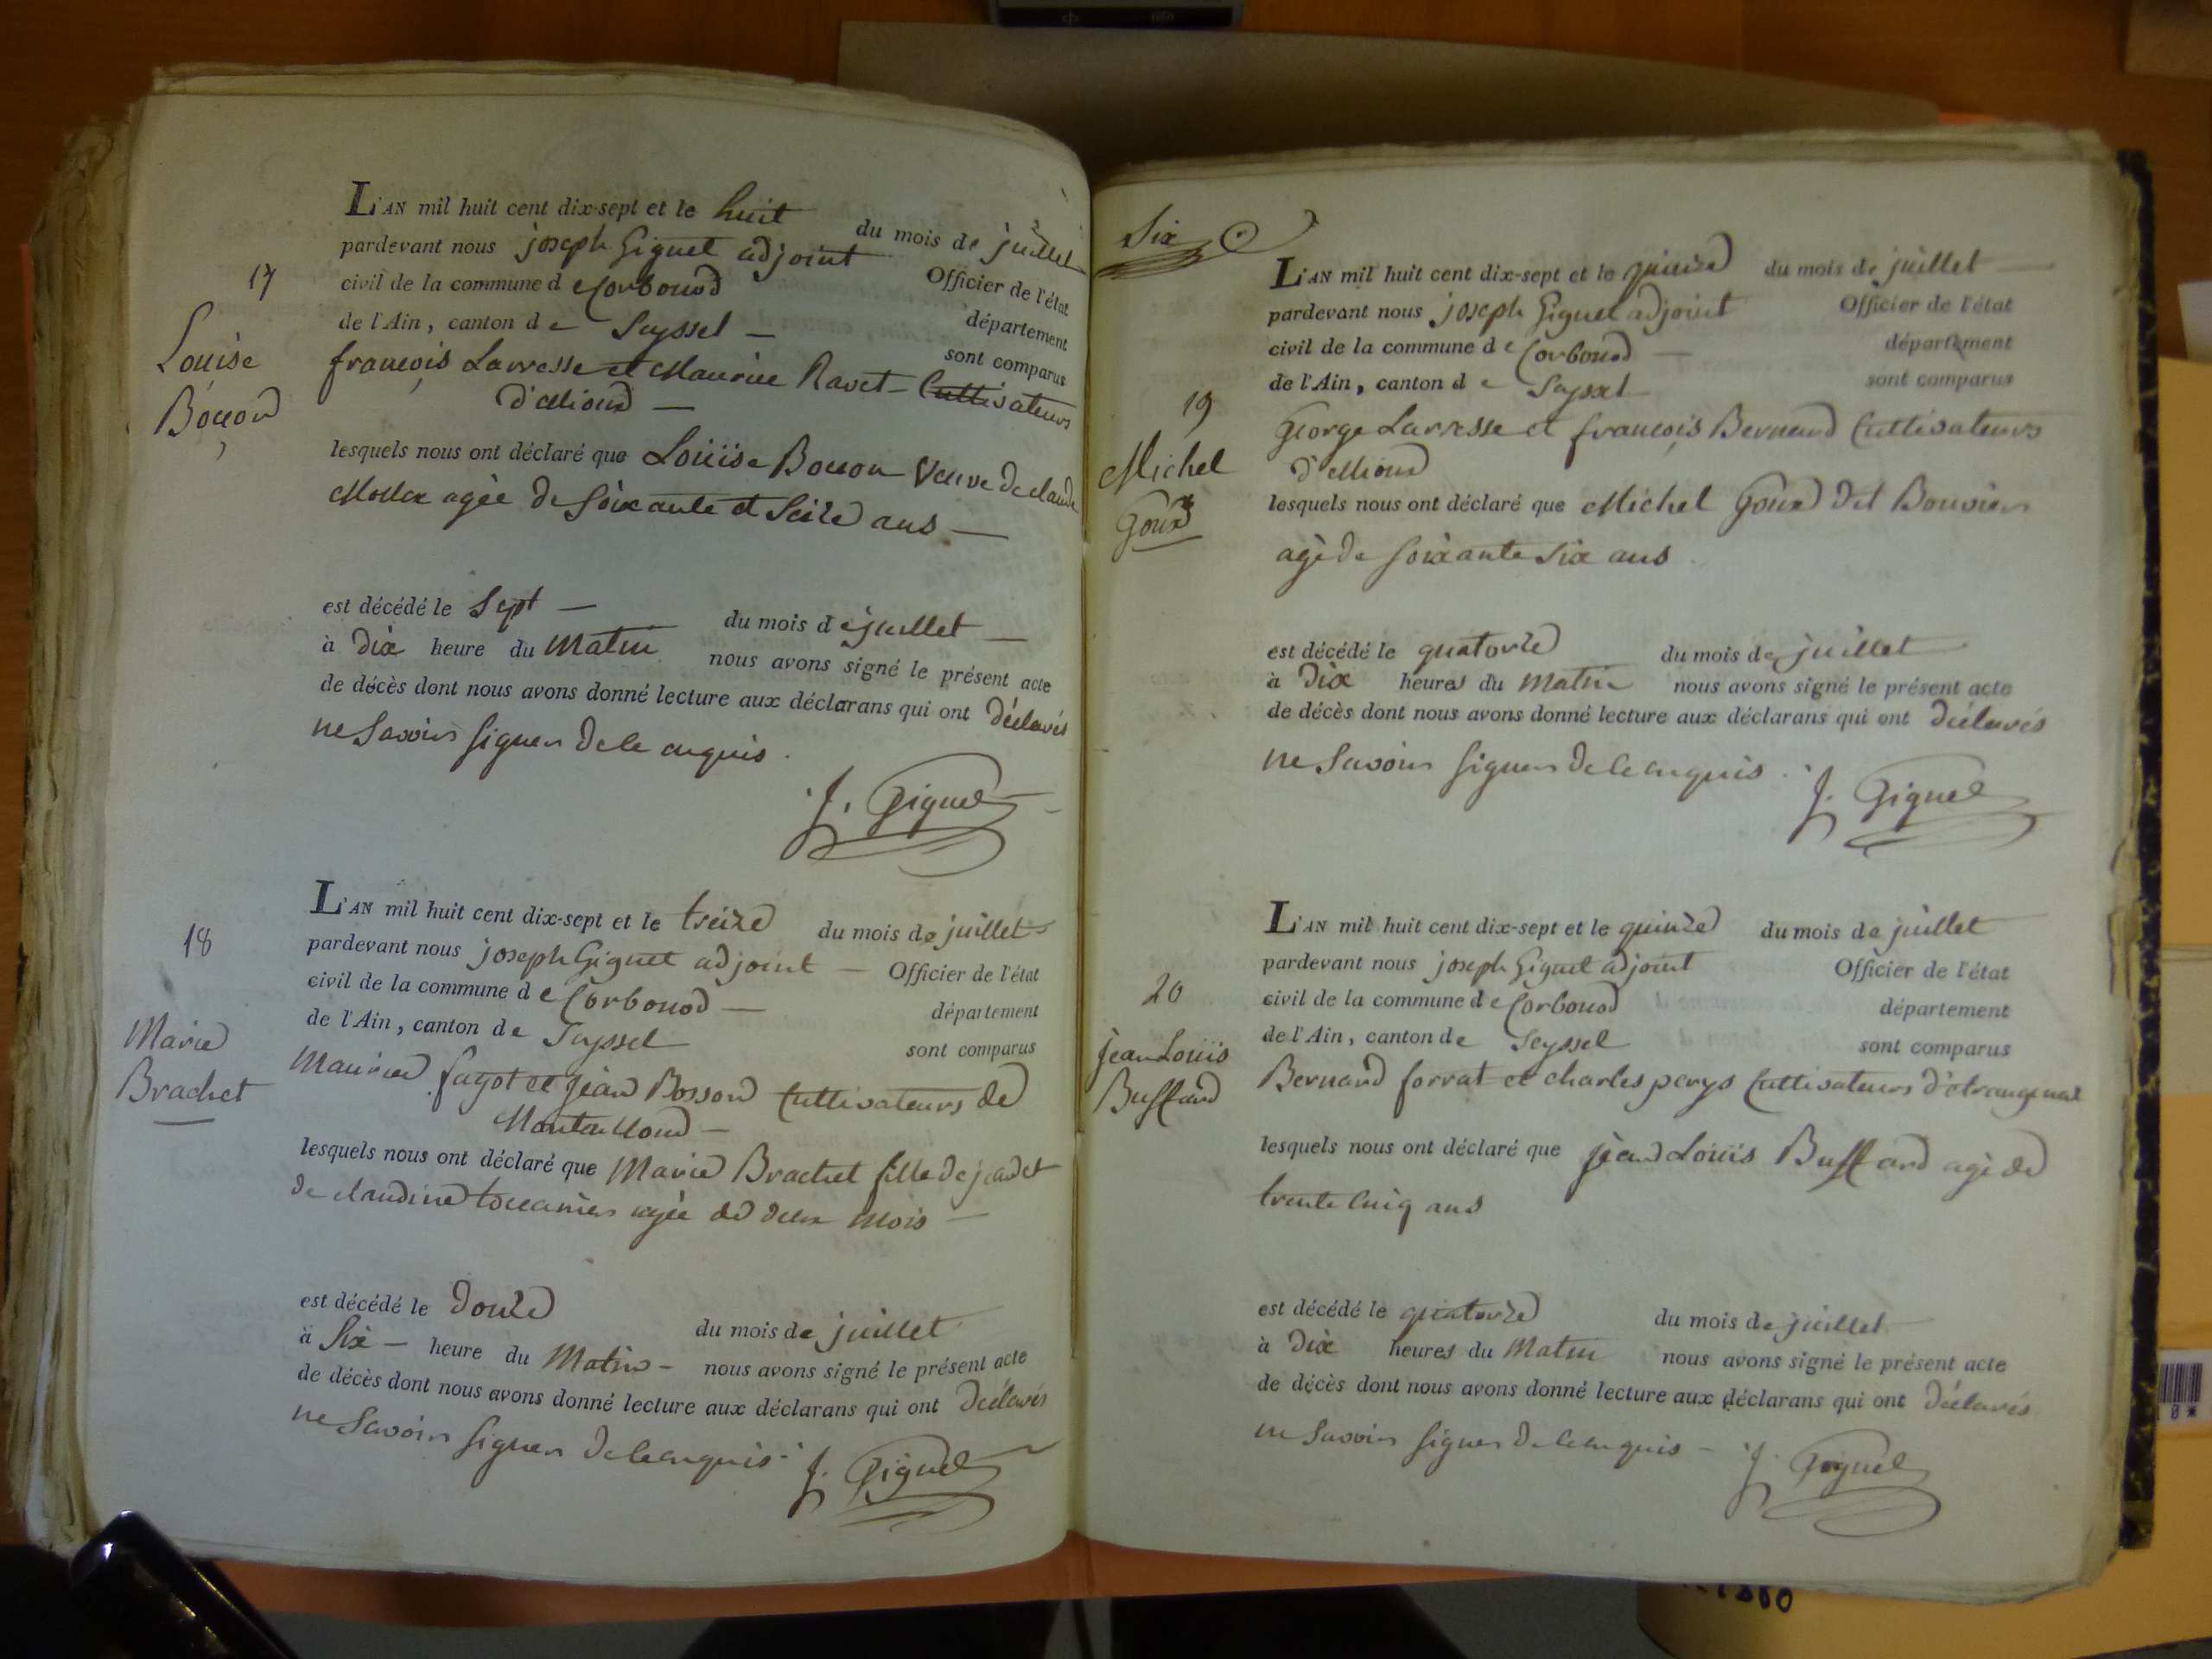 17
Louise
Bouon
L'AN mil huit cent dix-sept et le huit du mois de juillet
pardevant nous joseph Giguet adjoint Officier de l'état
civil de la commune de Corbonod département
de l'Ain, canton de Seyssel — sont comparus
françois Larresse et Maurice Ravet Cultivateurs
d'Etiond —
lesquels nous ont déclaré que Louise Bouon Veuve de claude
agée de Soixante et Seize ans —
est décédé le Sept — du mois de juillet —
à Dix heure du Matin nous avons signé le présent acte
de décès dont nous avons donné lecture aux déclarans qui ont déclarés
ne Savoir signer de ce enquis.
J. Giguet
18
Marie
Brachet
L'AN mil huit cent dix-sept et le treize du mois de juillet
pardevant nous joseph Giguet adjoint — Officier de l'état
civil de la commune de Corbonod — département
de l'Ain, canton de Seyssel sont comparus
Maurice fayot et jean Bosson Cultivateurs de
lesquels nous ont déclaré que Marie Brachet fille de j et
de claudine agée de deux mois —
est décédé le Douze du mois de juillet
à Six — heure du Matin — nous avons signé le présent acte
de décès dont nous avons donné lecture aux déclarans qui ont déclarés
ne Savoir signer de ce enquis.
J. Giguet
Six
19
Michel
Goux
L'AN mil huit cent dix-sept et le quinze du mois de juillet —
pardevant nous joseph Giguet adjoint Officier de l'état
civil de la commune de Corbonod — département
de l'Ain, canton de Seyssel sont comparus
George Larresse et françois Bernard Cultivateurs
lesquels nous ont déclaré que Michel Goux dit Bouvier
agé de soixante Six ans
est décédé le quatorze du mois de juillet
à Dix heures du Matin nous avons signé le présent acte
de décès dont nous avons donné lecture aux déclarans qui ont déclarés
ne Savoir signer de ce enquis.
J. Giguet
20
jean Louis
Buffard
L'AN mil huit cent dix-sept et le quinze du mois de juillet
pardevant nous joseph Giguet adjoint Officier de l'état
civil de la commune de Corbonod département
de l'Ain, canton de Seyssel sont comparus
Bernard forrat et charles perys Cultivateurs
lesquels nous ont déclaré que jean Louis Buffard agé de
trente Cinq ans
est décédé le quatorze du mois de juillet
à Dix heures du Matin nous avons signé le présent acte
de décès dont nous avons donné lecture aux déclarans qui ont déclarés
ne Savoir signer de ce enquis —
J. Giguet